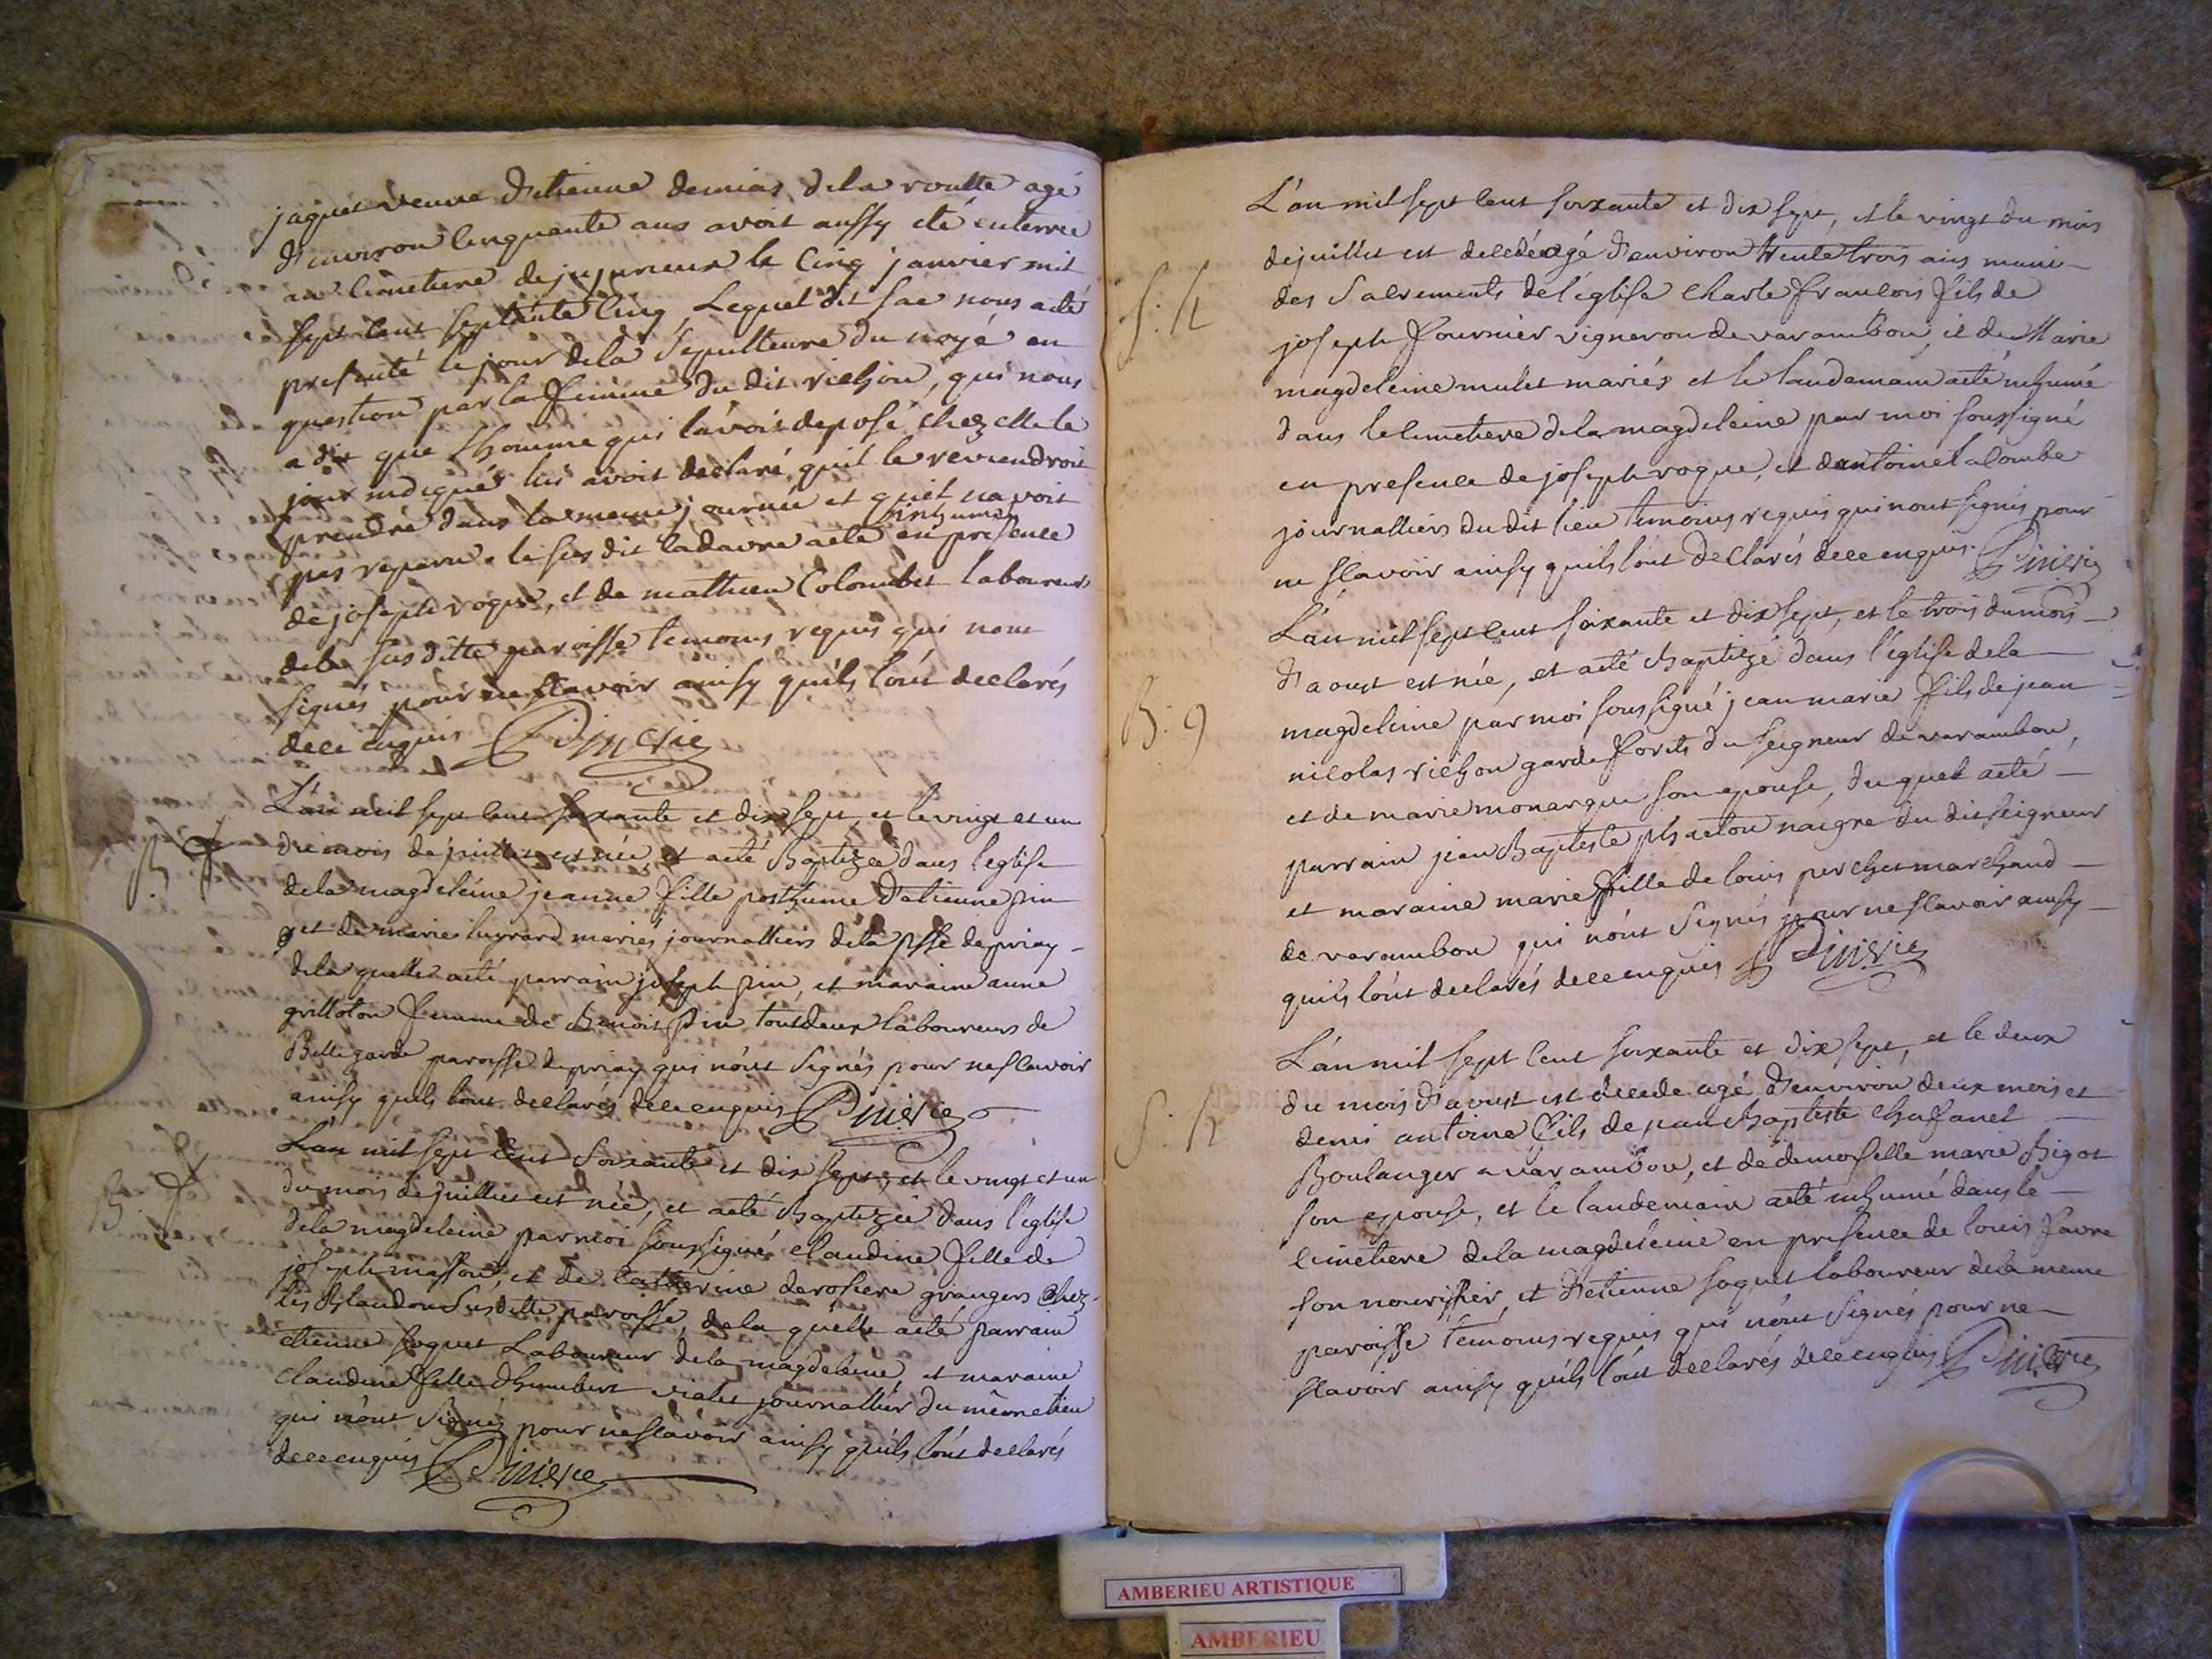 jaquet veuve d'Etienne demias de la routte agé
d'environ cinquante ans avoit aussy eté enterrée
au cimetiere de jujurieux le cinq janvier mil
sept cent septante cinq Lequel dit sac nous a eté
presenté le jour de la sepulteure du noyé en
question par la femme du dit richon, qui nous
a dit que l'homme qui l'avoit deposé chez elle le
jour indiqué lui avoit declaré qu'il le reviendroit
prendre dans la meme journée et qu'il n'avoit
pas reparu. le sus dit cadavre a eté inhumé en presence
de joseph vogue, et de mathieu Colombet laboureurs
de la sus ditte paroisse temoins requis qui n'ont
signés pour ne scavoir ainsy qu'ils l'ont declarés
de ce enquis Pineric
L'an mil sept cent soixante et dix sept, et le vingt et un
du mois de juillet est née et a eté Baptizée dans l'eglise
B: 7
de la magdeleine jeanne fille posthume d'etienne pin
et de marie mariés journalliers de la psse de priay
de la quelle a eté parrain joseph pin, et maraine anne
grilloton femme de Benoit pin tout deux laboureurs de
Bellegarde paroisse de priay qui n'ont signés pour ne scavoir
ainsy qu'ils l'ont declarés de ce enquis Pineric
L'an mil sept cent soixante et dix sept, et le vingt et un
B: 8
du mois de juillet est née, et a eté Baptizée dans l'eglise
de la magdeleine par moi soussigné claudine fille de
joseph masson, et de catherine derosiere grangers chez
les susditte paroisse, de la quelle a eté parrain
etienne soquet Laboureur de la magdeleine et maraine
claudine fille d'humbert vialet journallier du même lieu
qui n'ont signés pour ne scavoir ainsy qu'ils l'ont declarés
de ce enquis Pineric
L'an mil sept cent soixante et dix sept, et le vingt du mois
de juillet est decedé agé d'environ trente trois ans muni
S: 4
des sacrements de l'eglise charle francois fils de
joseph fournier vigneron de varambon, et de Marie
magdeleine mulet mariés et le landemain a eté inhumé
dans le cimetiere de la magdeleine par moi soussigné
en presence de joseph vogue, et d'antoine lacombe
journalliers du dit lieu temoins requis qui n'ont signés pour
ne scavoir ainsy qu'ils l'ont declarés de ce enquis. Pineric
L'an mil sept cent soixante et dix sept, et le trois du mois
d'aoust est née, et a eté Baptizé dans l'eglise de la
B: 9
magdeleine par moi soussigné jean marie fils de jean
nicolas richon garde forets du seigneur de varambon,
et de marie monarque son epouse, du quel a eté
parrain jean Baptiste phaeton naigre du dit seigneur
et maraine marie fille de louis perchet marchand
de varambon qui n'ont signés pour ne scavoir ainsy
qu'ils l'ont declarés de ce enquis Pineric
L'an mil sept cent soixante et dix sept, et le deux
du mois d'aoust est decede agé d'environ deux mois et
S: 5
demi antoine fils de jean Baptiste chafanel
Boulanger a varambon, et de demoiselle marie Bigot
son epouse, et le landemain a eté inhumé dans le
cimetiere de la magdeleine en presence de louis favre
son nourissier, et d'etienne soquet laboureur de la meme
paroisse temoins requis qui n'ont signés pour ne
scavoir ainsy qu'ils l'ont declarés de ce enquis Pineric
AMBERIEU ARTISTIQUE
AMBERIEU